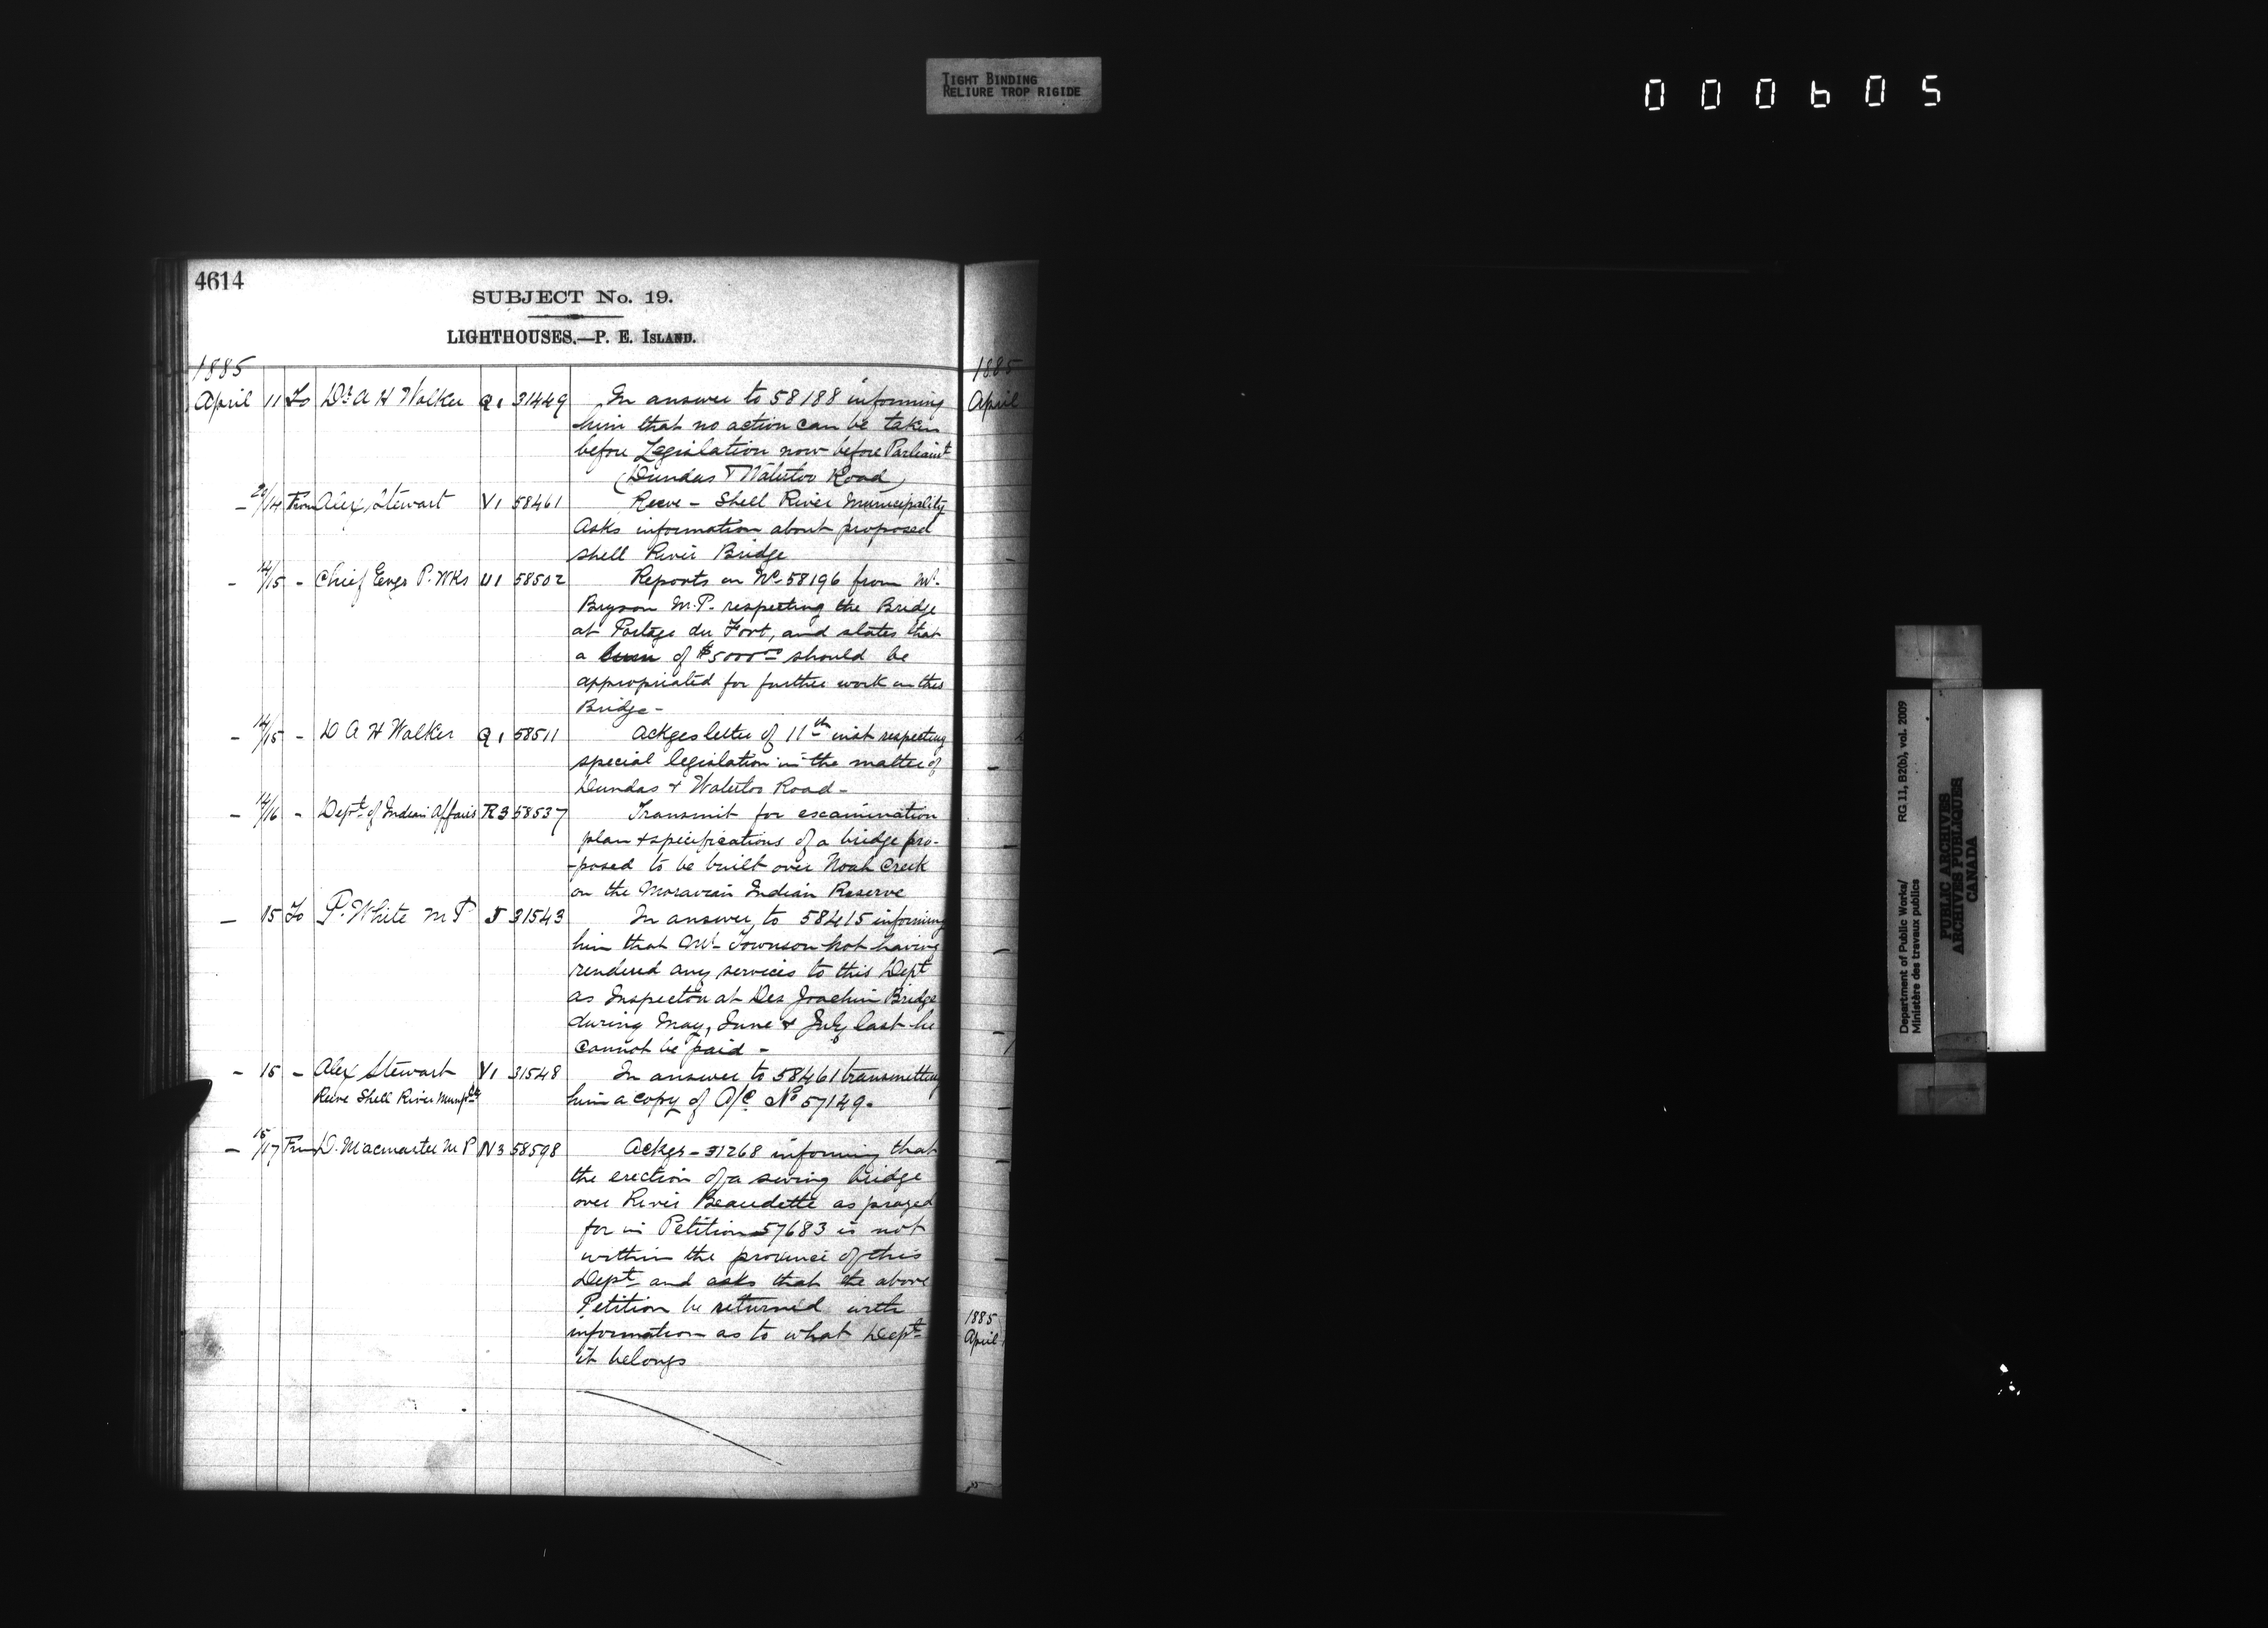 TIGHT BINDING
RELIURE TROP RIGIDE
000605
4614
SUBJECT No. 19.
LIGHTHOUSES.—P. E. ISLAND.
1885
April 11 To Dr A H Walker Q1 31449 In answer to 58188 informing
him that no action can be taken
before Legislation now before Parliamt
(Dundas & Waterloo Road)
From Alex Stewart V1 58461 Reeve - Shell River Municipality
Asks information about proposed
Shell River Bridge
- 14/15 - Chief Engr P. Wks U1 58502 Reports on No. 58196 from Mr.
Bryson M.P. respecting the Bridge
at Portage du Fort, and states that
a of $5000.00 should be
appropriated for further work on this
Bridge -
- 14/15 - D A H Walker Q1 58511 Ackges letter of 11th inst respecting
special legislation in the matter of
Dundas & Waterloo Road -
- 14/16 - Dept. of Indian Affairs R3 58537 Transmit for examination
plan & specifications of a bridge pro-
-posed to be built over Noah Creek
on the Moravian Indian Reserve
- 15 To P. White M P J 31543 In answer to 58415 informing
him that Mr. Townson not having
rendered any services to this Dept
as Inspector at Des Joachim Bridge
during May, June & July last he
cannot be paid -
- 15 - Alex Stewart V1 31548 In answer to 58461 transmitting
Reeve Shell River
him a copy of O/C No 57149.
- 15/17 From D. Macmaster M P N3 58598 Ackges - 31268 informing that
the erection of a swing bridge
over River Beaudette as prayed
for in Petition 57683 is not
within the province of this
Dept. and asks that the above
Petition be returned with
information as to what Dept.
it belongs
1885
April
1885
April
Department of Public Works/
Ministère des travaux publics
RG 11, B2(b), vol. 2009
PUBLIC ARCHIVES
ARCHIVES PUBLIQUES
CANADA